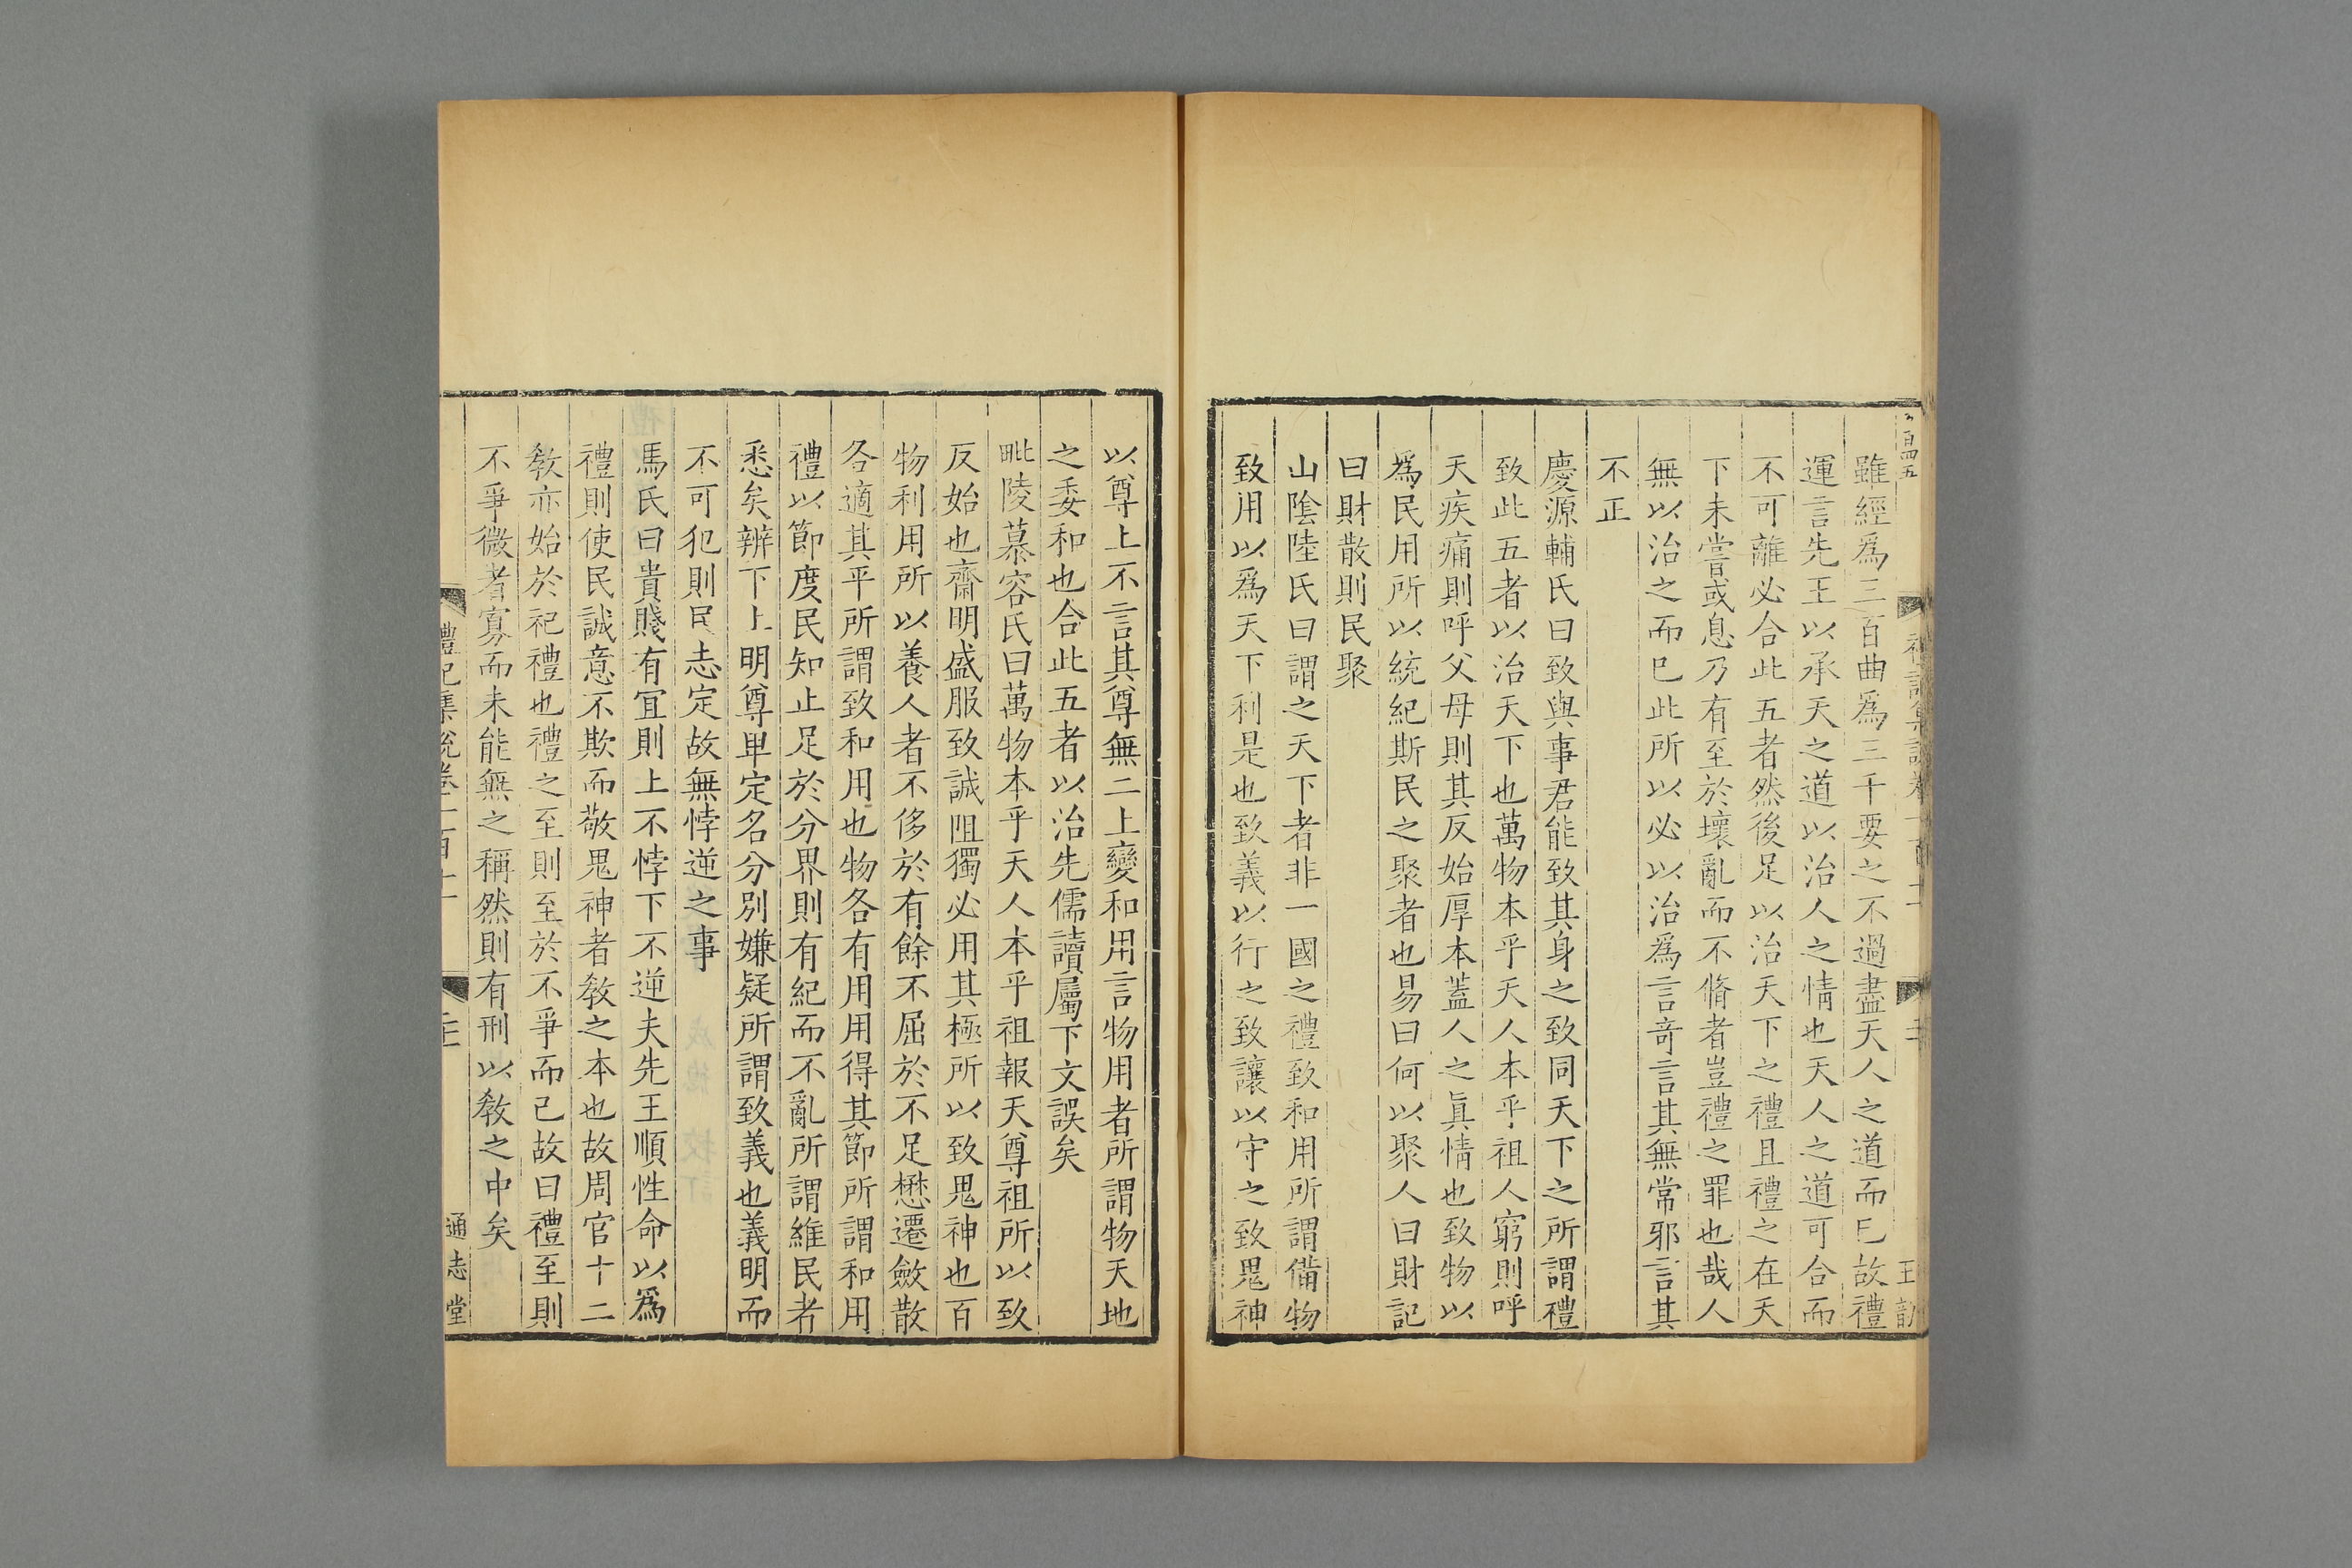 雖經爲三百曲爲三千要之不過盡天人之道而巳故禮
運言先王以承天之道以治人之情也天人之道可合而
不可離必合此五者然後足以治天下之禮且禮之在天
下未嘗或息乃有至於壞亂而不脩者豈禮之罪也哉人
無以治之而巳此所以必以治爲言竒言其無常邪言其
不正
慶源輔氏曰致與事君能致其身之致同天下之所謂禮
致此五者以治天下也萬物本乎天人本乎祖人窮則呼
天疾痛則呼父母則其反始厚本蓋人之眞情也致物以
爲民用所以統紀斯民之聚者也易曰何以聚人曰財記
曰財散則民聚
山隂陸氏曰謂之天下者非一國之禮致和用所謂備物
致用以爲天下利是也致義以行之致讓以守之致鬼神
以尊上不言其尊無二上變和用言物用者所謂物天地
之委和也合此五者以治先儒讀屬下文誤矣
毗陵慕容氏曰萬物本乎天人本乎祖報天尊祖所以致
反始也齋明盛服致誠阻獨必用其極所以致鬼神也百
物利用所以養人者不侈於有餘不屈於不足懋遷斂散
各適其平所謂致和用也物各有用用得其節所謂和用
禮以節度民知止足於分界則有紀而不亂所謂維民者
悉矣辨下上明尊卑定名分別嫌疑所謂致義也義明而
不可犯則民志定故無悖逆之事
馬氏曰貴賤有冝則上不悖下不逆夫先王順性命以爲
禮則使民誠意不欺而敬鬼神者敎之本也故周官十二
敎亦始於祀禮也禮之至則至於不爭而已故曰禮至則
不爭微者寡而未能無之稱然則有刑以敎之中矣
通志堂